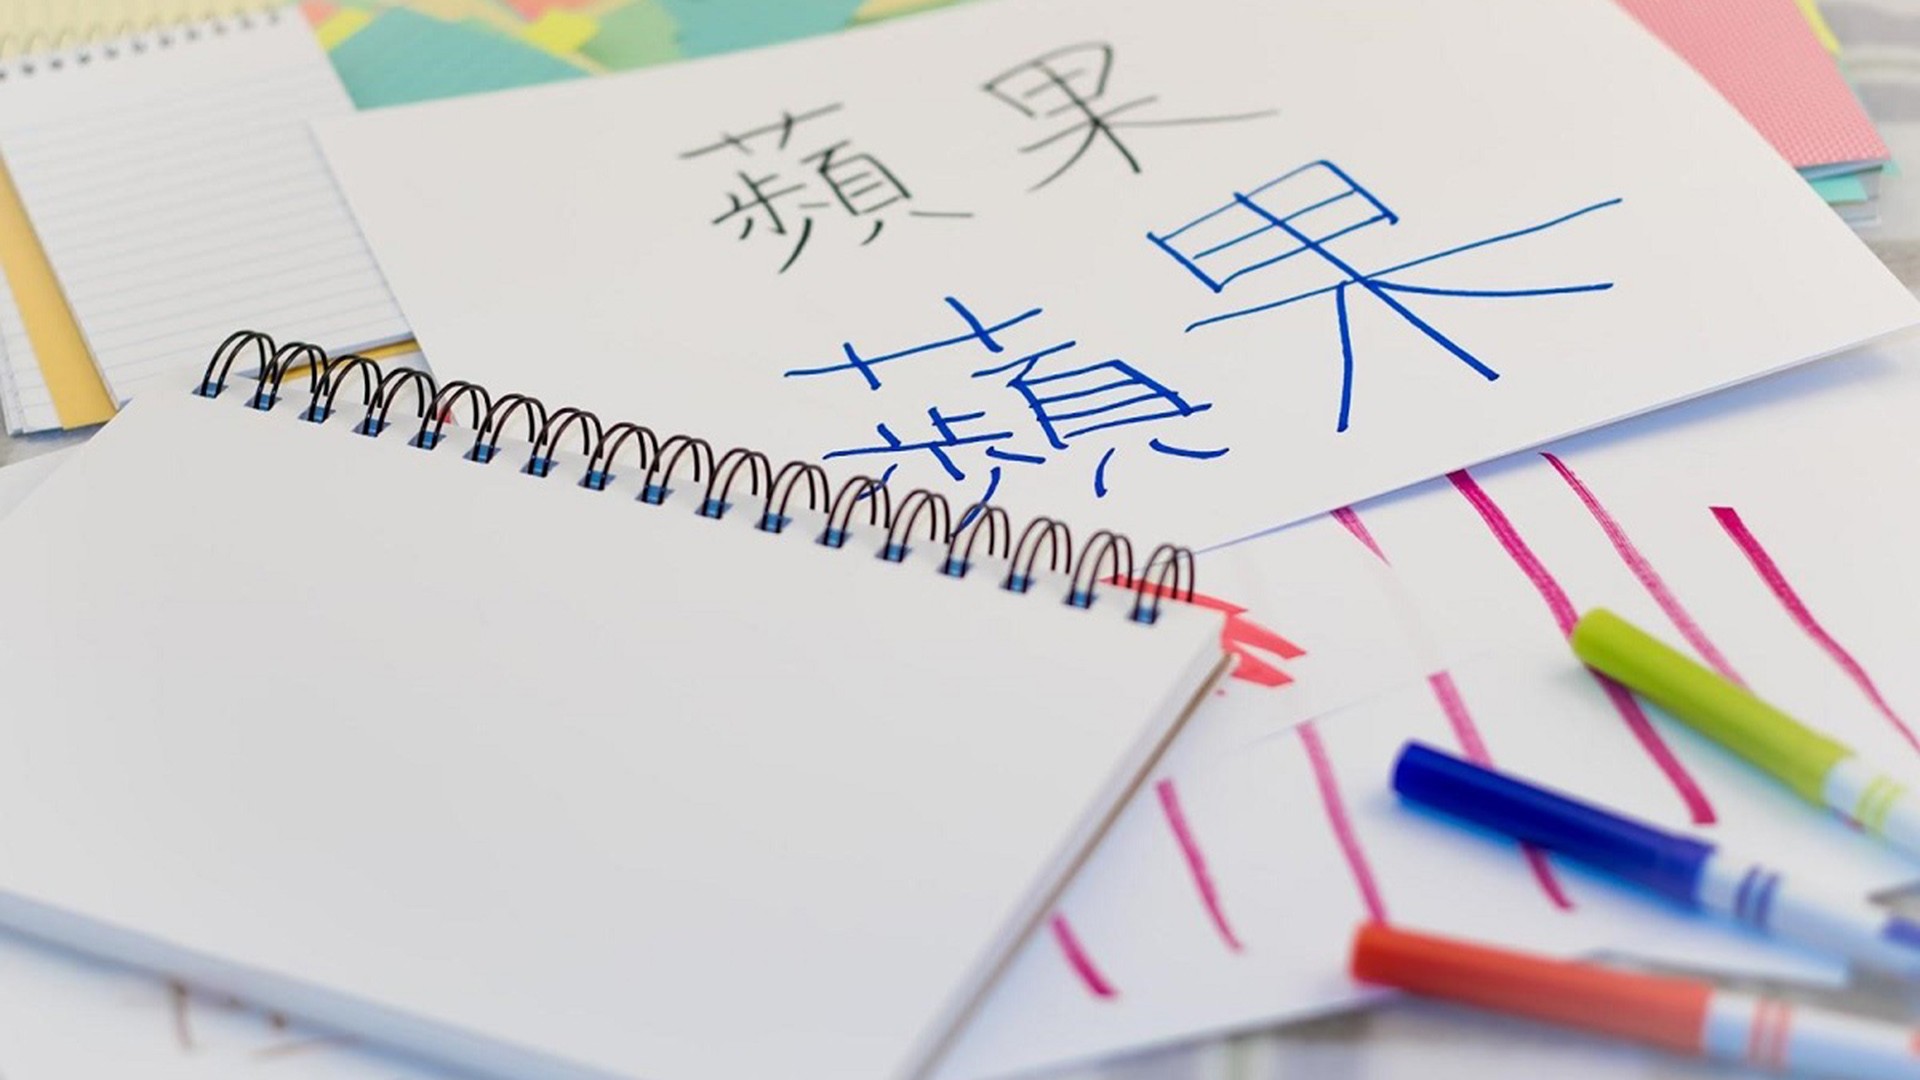 蘋果
蘋果